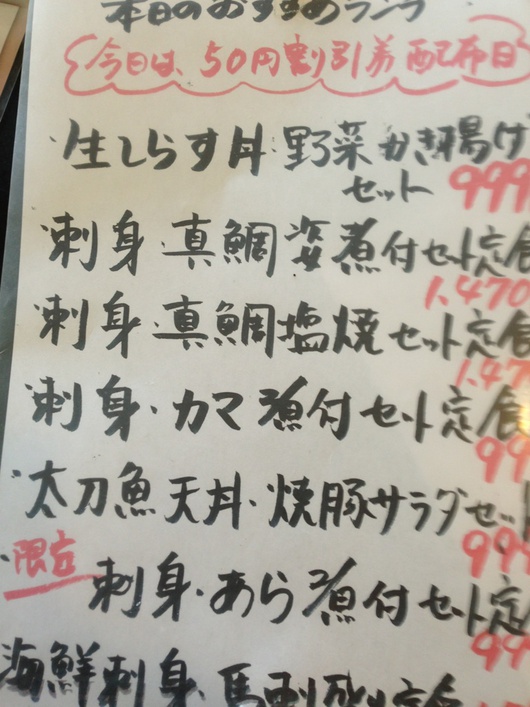 本日のおすすめランチ
今日は、50円割引券配布日
・生しらす丼・野菜かき揚げ
セット 999
・刺身・真鯛姿煮付セット定食
1,470
・刺身・真鯛塩焼セット定食
1,47
・刺身・カマ煮付セット定食
99
・太刀魚天丼・焼豚サラダセット
999
・限定 刺身・あら煮付セット定
99
海鮮刺身・馬刺